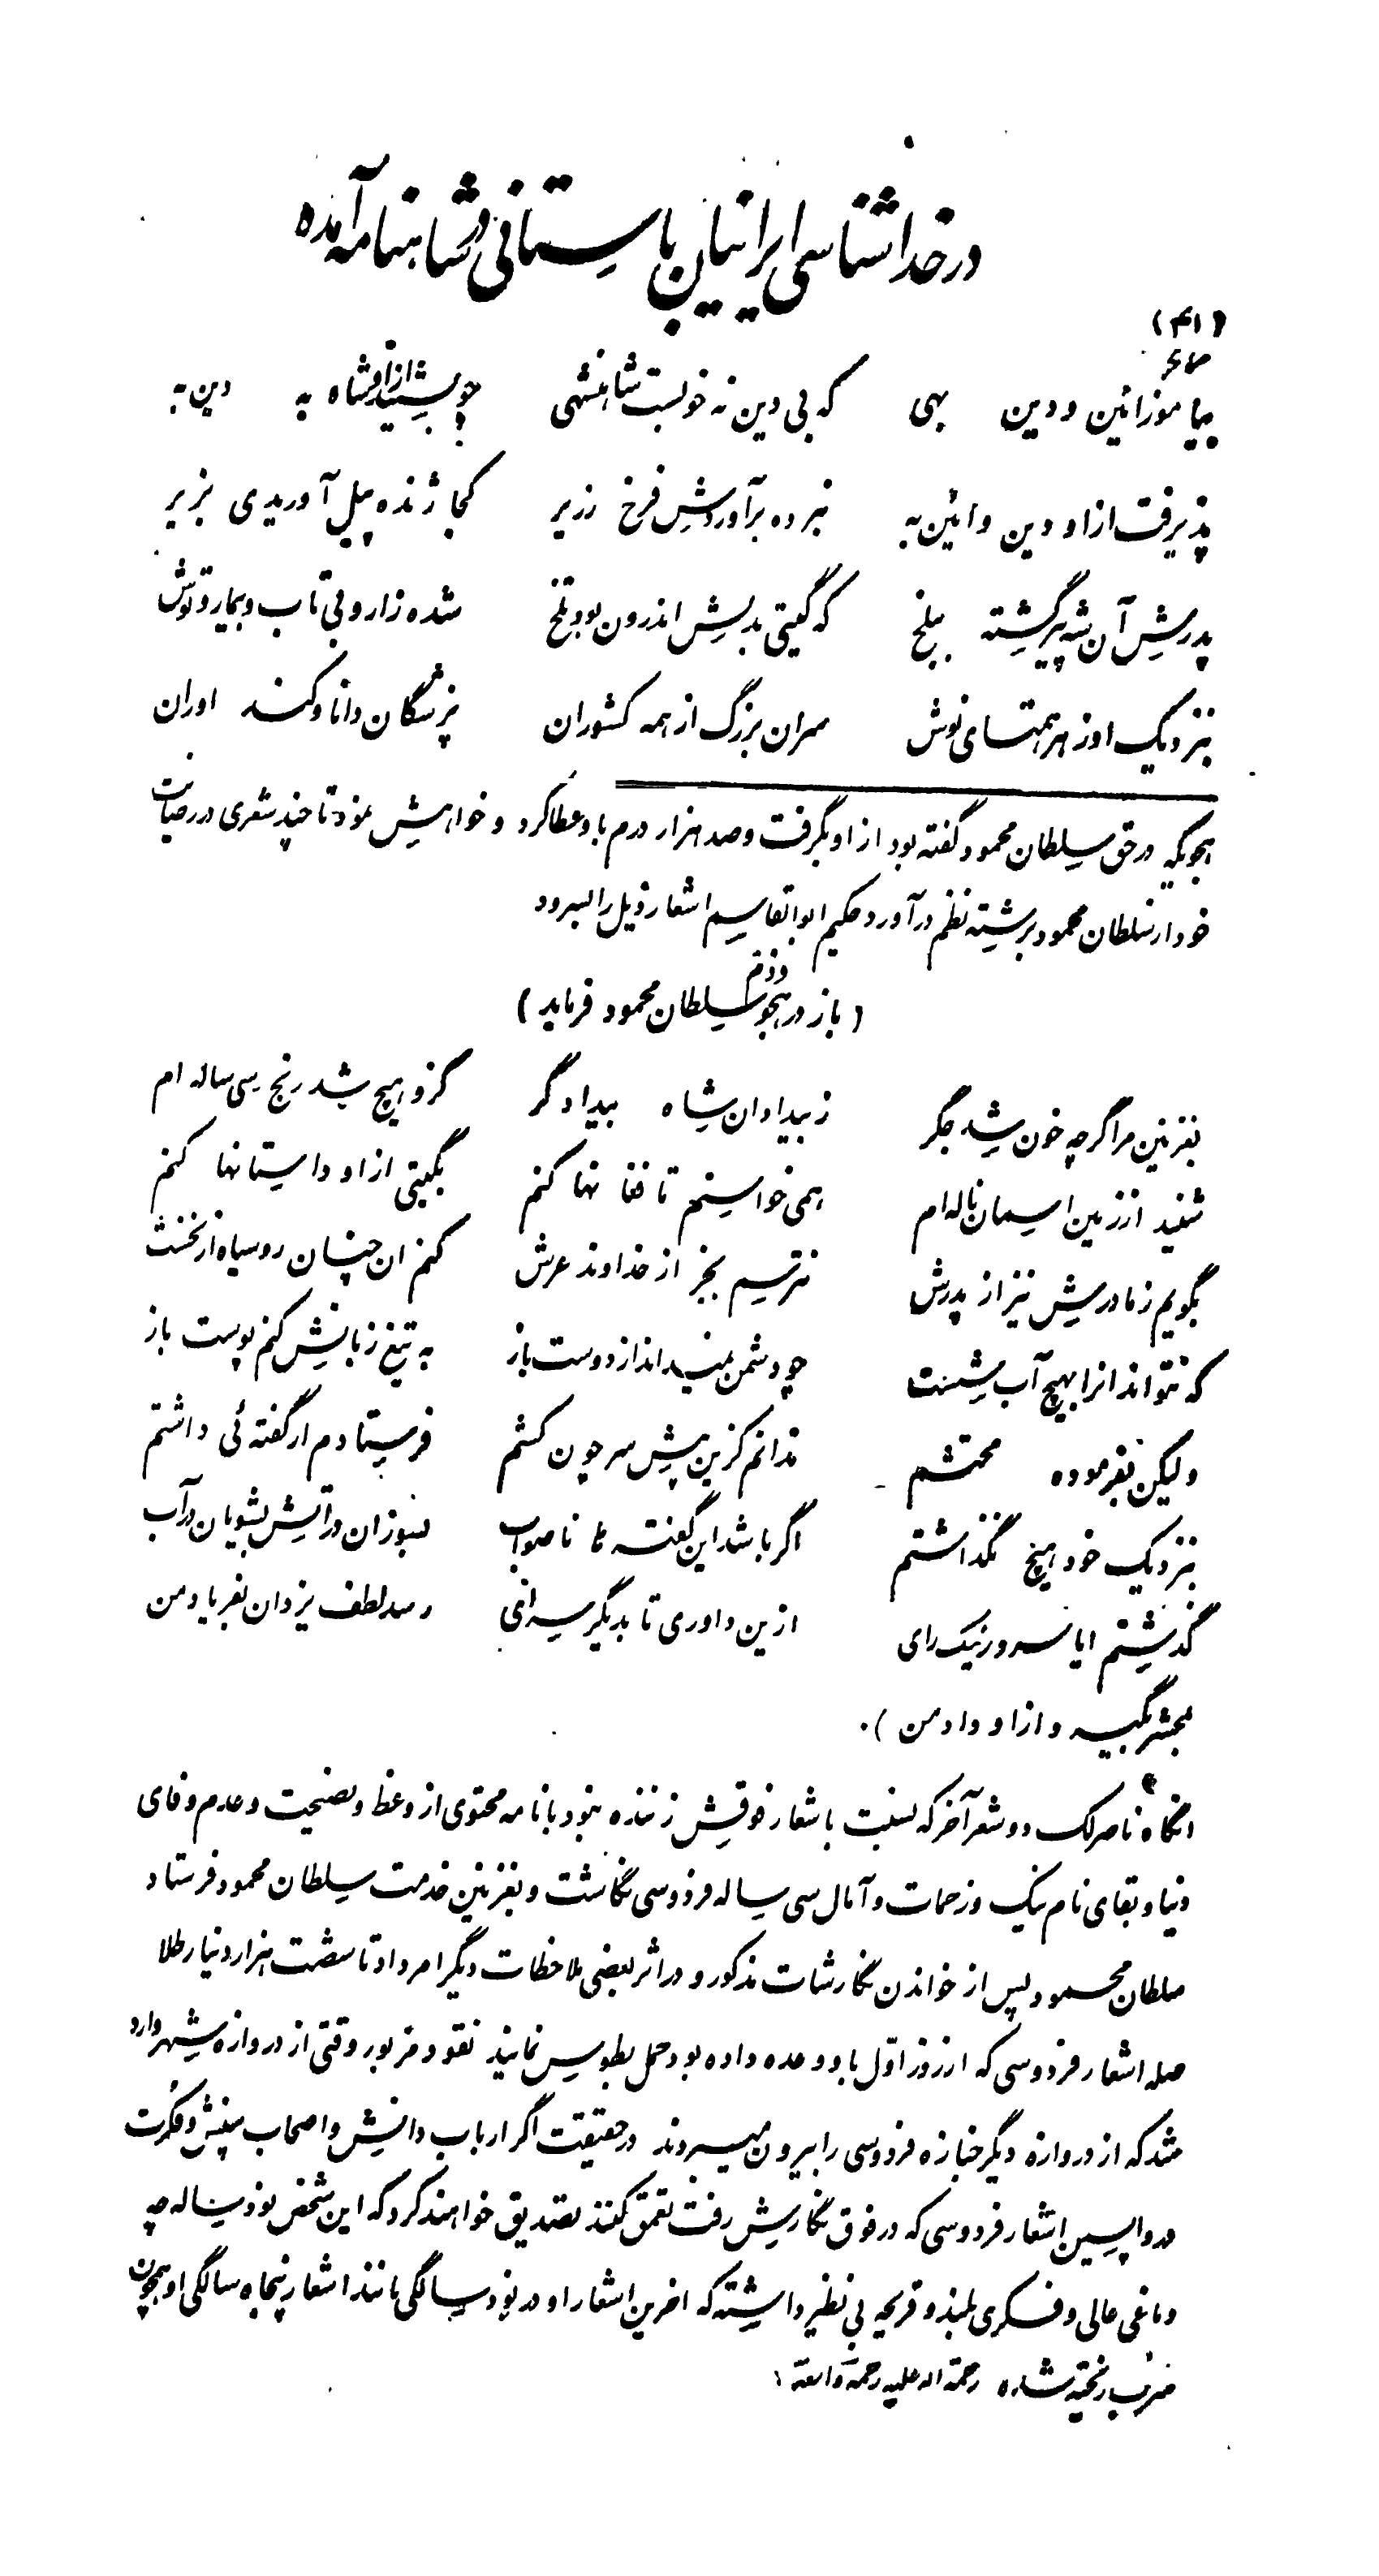 در خداشناسی ایرانیان باستانی در شاهنامه آمده
(۴۱)
بیاموز ائین و دین بهی که بی دین نه خوبست شاهنشهی چو بشنید از او شاه به دین به
پذیرفت از او دین و ائین به نبرده برآوردش فرخ زریر کجا ژنده پیل آوریدی بزیر
پدرش آن شه پیر گشته ببلخ که گیتی بدلش اندرون بود تلخ شده زار و بی تاب و بیمار و توش
بنزدیک او زهر همتای نوش سران بزرگ از همه کشوران پزشگان دانا و کند اوران
هجویکه در حق سلطان محمود گفته بود از او بگرفت و صد هزار درم باو عطا کرد و خواهش نمود تا چند شعری در رضایت
خود از سلطان محمود برشته نظم درآورد حکیم ابوالقاسم اشعار ذیل را بسرود
(باز در هجو و ذم سلطان محمود فرماید)
بغزنین مرا گرچه خون شد جگر ز بیدادان شاه بیدادگر گزو هیچ شد رنج سی ساله ام
شنید از زمین اسمان ناله ام همی خواستم تا فغانها کنم بگیتی از او داستانها کنم
بگویم ز مادرش نیز از پدرش نترسم بجز از خداوند عرش کنم ان چنان روسیاه از نخست
که نتواند انرا بهیچ آب شست چو دشمن نمیداند از دوست باز به تیغ زبانش کنم پوست باز
ولیکن بفرموده محتشم ندانم کزین پیش سر چون کشم فرستادم ار گفته ئی داشتم
بنزدیک خود هیچ نگذاشتم اگر باشد این گفته ها ناصواب بسوزان در آتش بشویان در آب
گذشتم ایا سرور نیک رای ازین داوری تا بدیگر سرای رسد لطف یزدان بفریاد من
بمحشر بگیرد از او داد من).
انگاه ناصر لک دو شعر آخر که نسبت باشعار فوقش زننده نبود با نامه محتوی از وعظ و نصیحت و عدم وفای
دنیا و بقای نام نیک و زحمات و آمال سی ساله فردوسی نگاشت و بغزنین خدمت سلطان محمود فرستاد
سلطان محمود پس از خواندن نگارشات مذکور و در اثر بعضی ملاحظات دیگر امر داد تا شصت هزار دینار طلا
صله اشعار فردوسی که از روز اول باو وعده داده بود حمل بطوس نمایند نقود مزبور وقتی از دروازه شهر وارد
شد که از دروازه دیگر جنازه فردوسی را بیرون میبردند در حقیقت اگر ارباب دانش و اصحاب بینش و فکرت
در واپسین اشعار فردوسی که در فوق نگارش رفت تعمق کنند تصدیق خواهند کرد که این شخص نود ساله چه
دماغی عالی و فکری بلند و قریحه بی نظیر داشته که اخرین اشعار او در نود سالگی مانند اشعار پنجاه سالگی او همچون
ریخته شده رحمة اله علیه رحمة واسعة